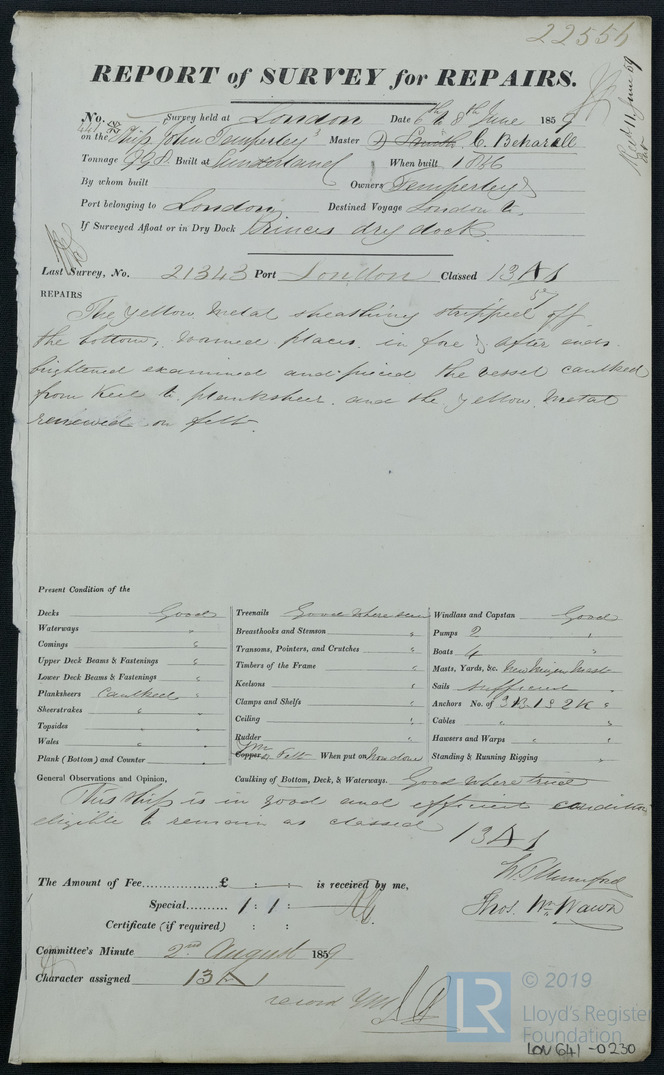 22556
REPORT of SURVEY for REPAIRS.
Recd 11 June 59
No. Survey held at London Date 6th & 8th June 1859
on the Ship John Temperley Master D Smith C. Beharell
Tonnage 998 Built at Sunderland When built 1856
By whom built Owners Temperleys
Port belonging to London Destined Voyage London to
If Surveyed Afloat or in Dry Dock Princes dry dock.
Last Survey, No. 21343 Port London Classed 13 A 1
REPAIRS
The yellow metal sheathing stripped off
the bottom, wormed places in fore & after ends
brightened examined and pieced the vessel caulked
from Keel to planksheer and the yellow metal
renewed on felt.
Present Condition of the
Decks Good
Waterways "
Comings "
Upper Deck Beams & Fastenings "
Lower Deck Beams & Fastenings "
Planksheers Caulked "
Sheerstrakes "
Topsides "
Wales "
Plank (Bottom) and Counter
Treenails Good where seen
Breasthooks and Stemson "
Transoms, Pointers, and Crutches "
Timbers of the Frame "
Keelsons "
Clamps and Shelfs "
Ceiling "
Rudder "
Copper YM on Felt When put on Now done
Windlass and Capstan Good
Pumps 2 "
Boats 4 "
Masts, Yards, &c. New Mizen Mast
Sails sufficient
Anchors No. of 3B 1S 2K "
Cables "
Hawsers and Warps "
Standing & Running Rigging "
General Observations and Opinion, Caulking of Bottom, Deck, & Waterways. Good where tried
This ship is in good and efficient condition
eligible to remain as classed
13 A 1
The Amount of Fee £ : : is received by me,
Special 1 : 1 :
Certificate (if required) : :
Thos. Wm. Wawn
Committee's Minute 2nd August 1859
Character assigned 13 A 1
record YM
© 2019
LR
Lloyd's Register
Foundation
LON 641-0230